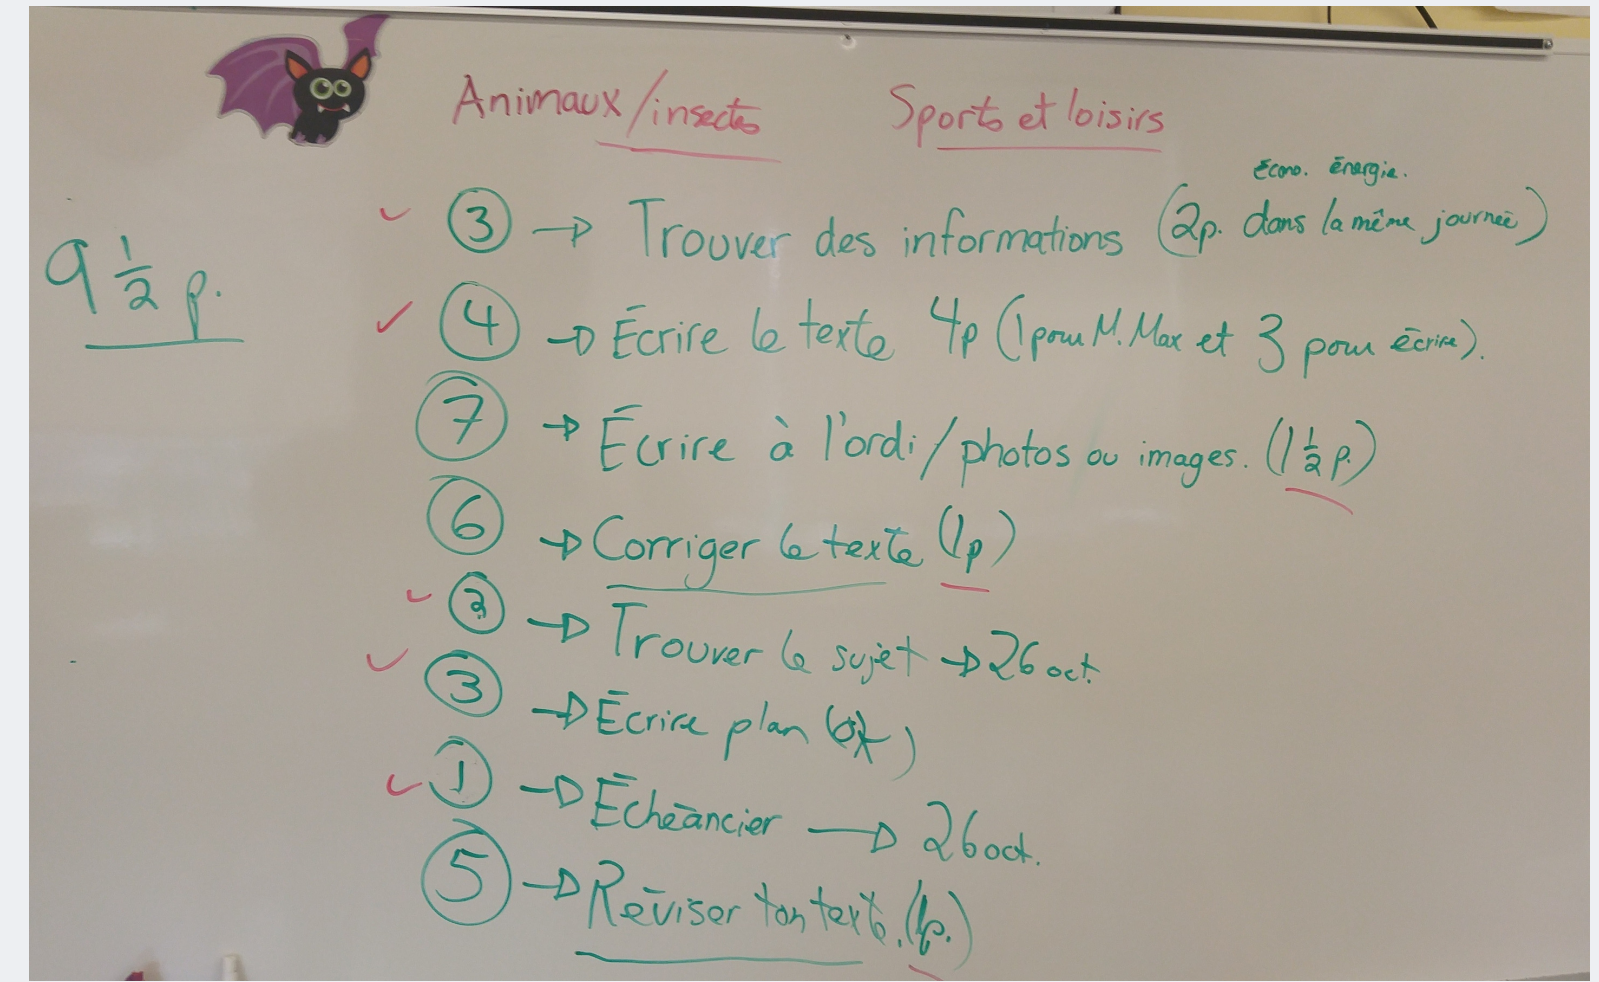 Animaux/insectes Sports et loisirs
Écono. énergie.
③ → Trouver des informations (2p. dans la même journée)
9 1/2 p.
④ → Écrire le texte 4p (1 pour M. Max et 3 pour écrire).
⑦ → Écrire à l'ordi/photos ou images. (1 1/2 p.)
⑥ → Corriger le texte (1p)
② → Trouver le sujet → 26 oct.
③ → Écrire plan
① → Échéancier → 26 oct.
⑤ → Réviser ton texte. (1p.)